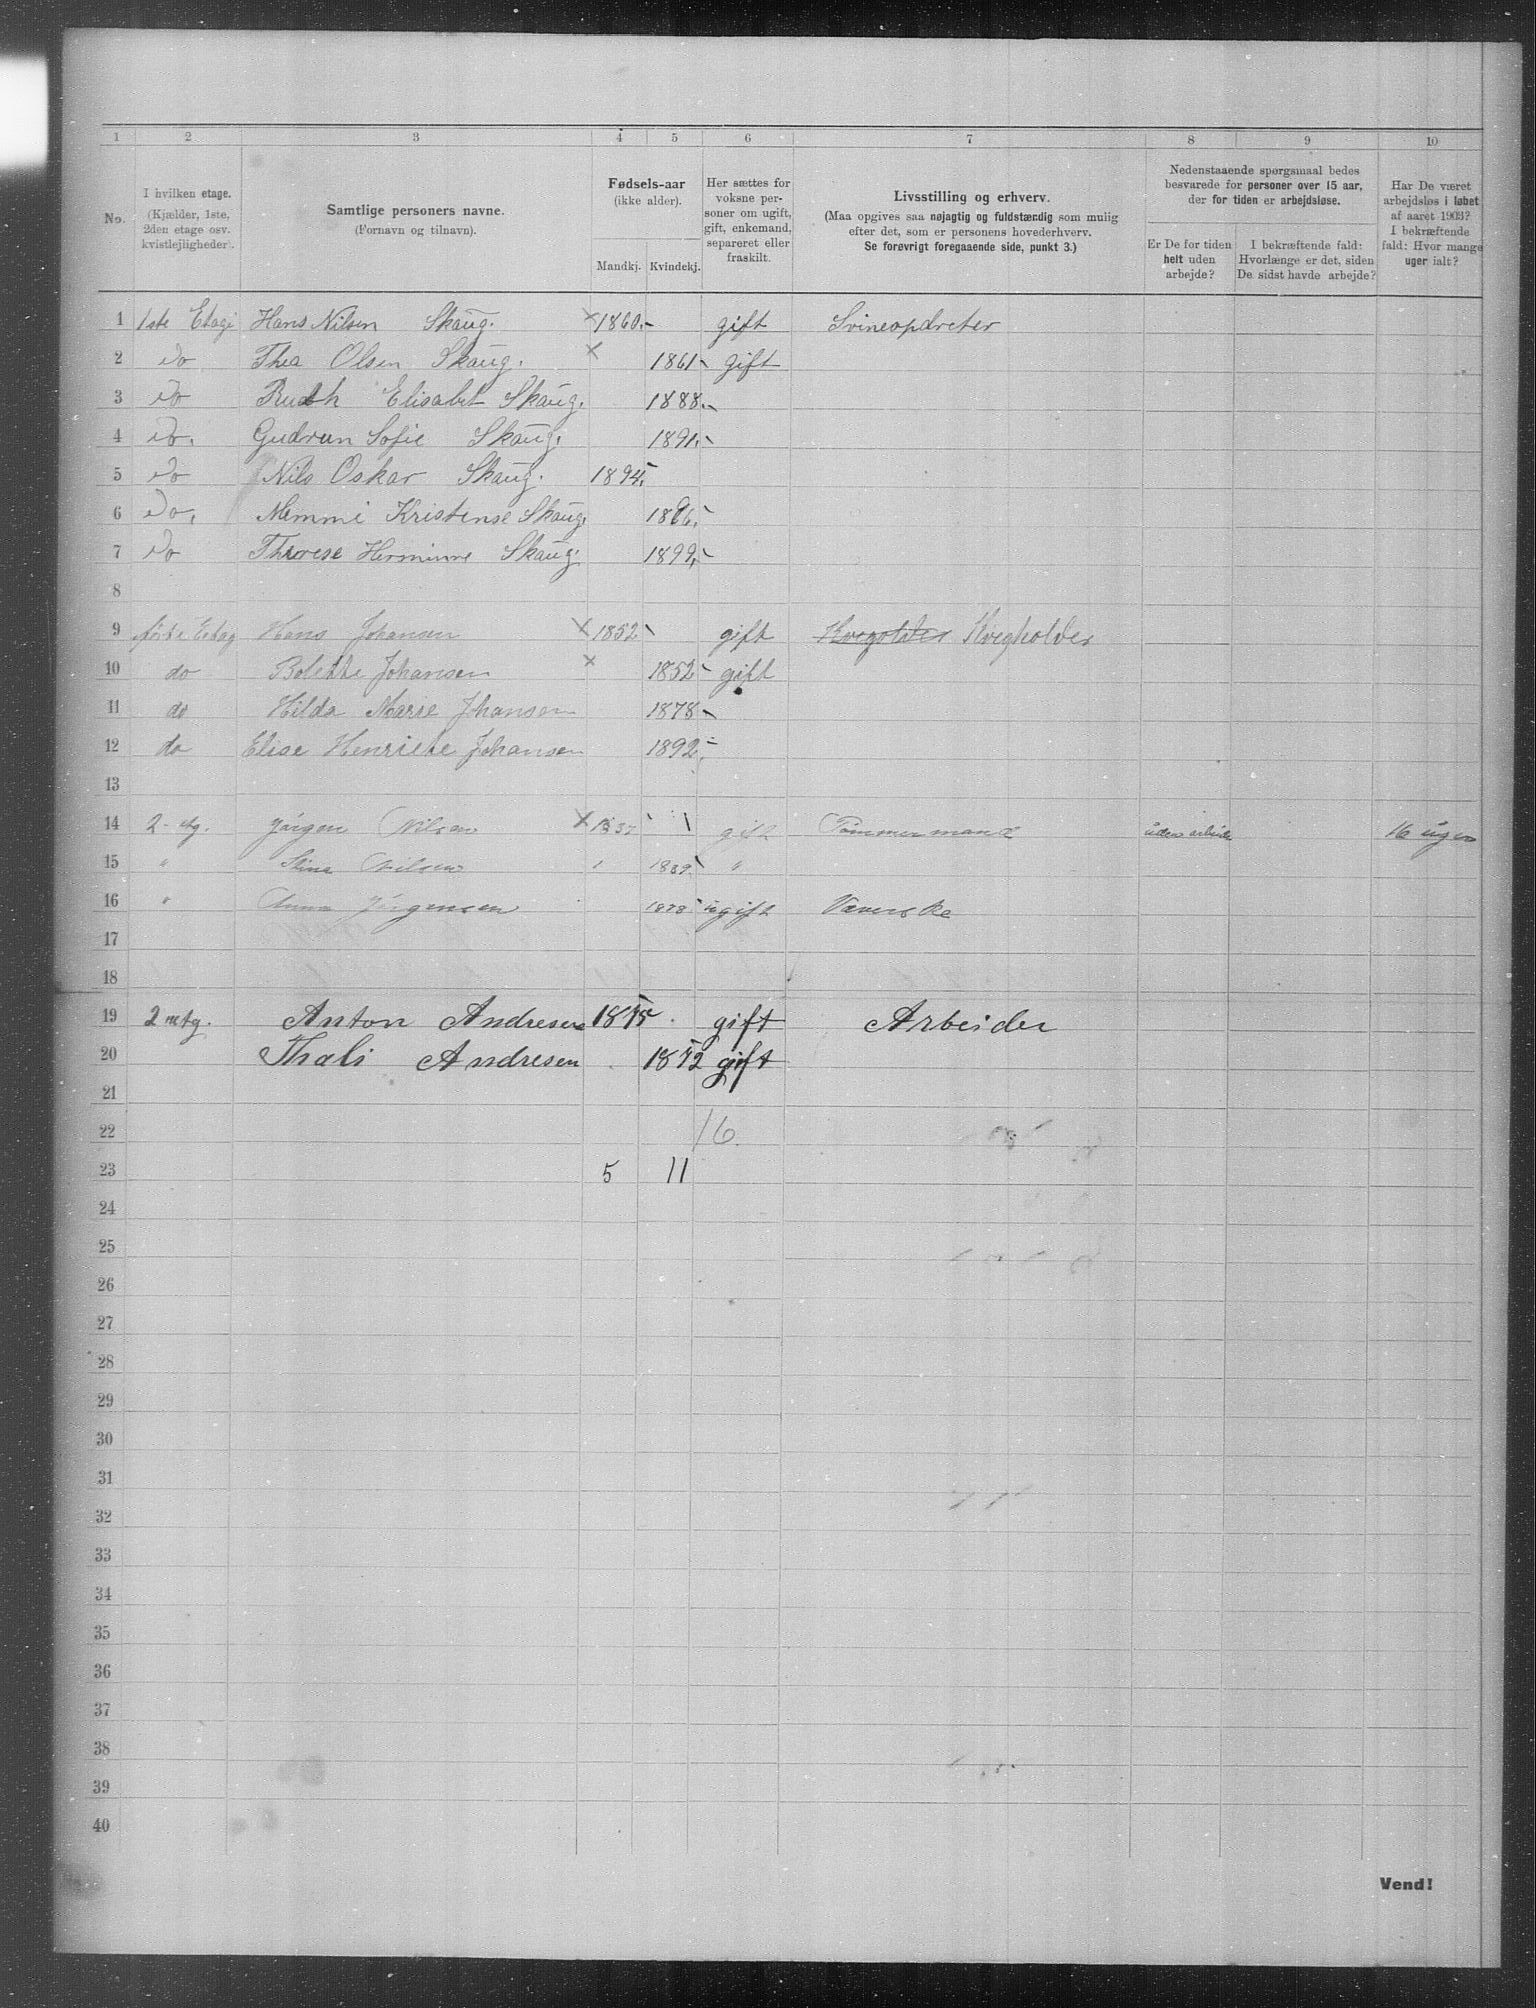 1 2 3 4 5 6 7 8 9 10
No.
I hvilken etage.
(Kjælder, 1ste,
2den etage osv.
kvistlejligheder).
Samtlige personers navne.
(Fornavn og tilnavn).
Fødsels-aar
(ikke alder).
Mandkj. Kvindekj.
Her sættes for
voksne per-
soner om ugift,
gift, enkemand,
separeret eller
fraskilt.
Livsstilling og erhverv.
(Maa opgives saa nøjagtig og fuldstændig som mulig
efter det, som er personens hovederhverv.
Se forøvrigt foregaaende side, punkt 3.)
Nedenstaaende spørgsmaal bedes
besvarede for personer over 15 aar,
der for tiden er arbejdsløse.
Er De for tiden
helt uden
arbejde?
I bekræftende fald:
Hvorlænge er det, siden
De sidst havde arbejde?
Har De været
arbejdsløs i løbet
af aaret 1903?
I bekræftende
fald: Hvor mange
uger ialt?
1 1ste Etagi Hans Nilsen Skaug. × 1860 gift Svineopdreter
2 Do Thea Olsen Skaug. × 1861 gift
3 Do Ruth Elisabet Skaug. 1888
4 Do. Gudrun Sofie Skaug. 1891
5 Do Nils Oskar Skaug. 1894
6 Do. Mimmi Kristense Skaug. 1896
7 Do Therese Herminne Skaug. 1899
8
9 første Etag Hans Johansen × 1852 gift Kvegolder Kvegholder
10 do Bolette Johansen × 1852 gift
11 do Hilda Marie Jhansen 1878
12 do Elise Henriete Johansen 1892
13
14 2 etg. Jörgen Nilsen × 1837 gift Tømmermand uden arbeide 16 uger
15 " Stina Nilsen 1839 "
16 " Anna Jörgensen 1878 ugift Væverske
17
18
19 2 etg. Anton Andresen 1875 gift Arbeider
20 Thali Andresen 1872 gift
21
22 16.
23 5 11
24
25
26
27
28
29
30
31
32
33
34
35
36
37
38
39
40
Vend!